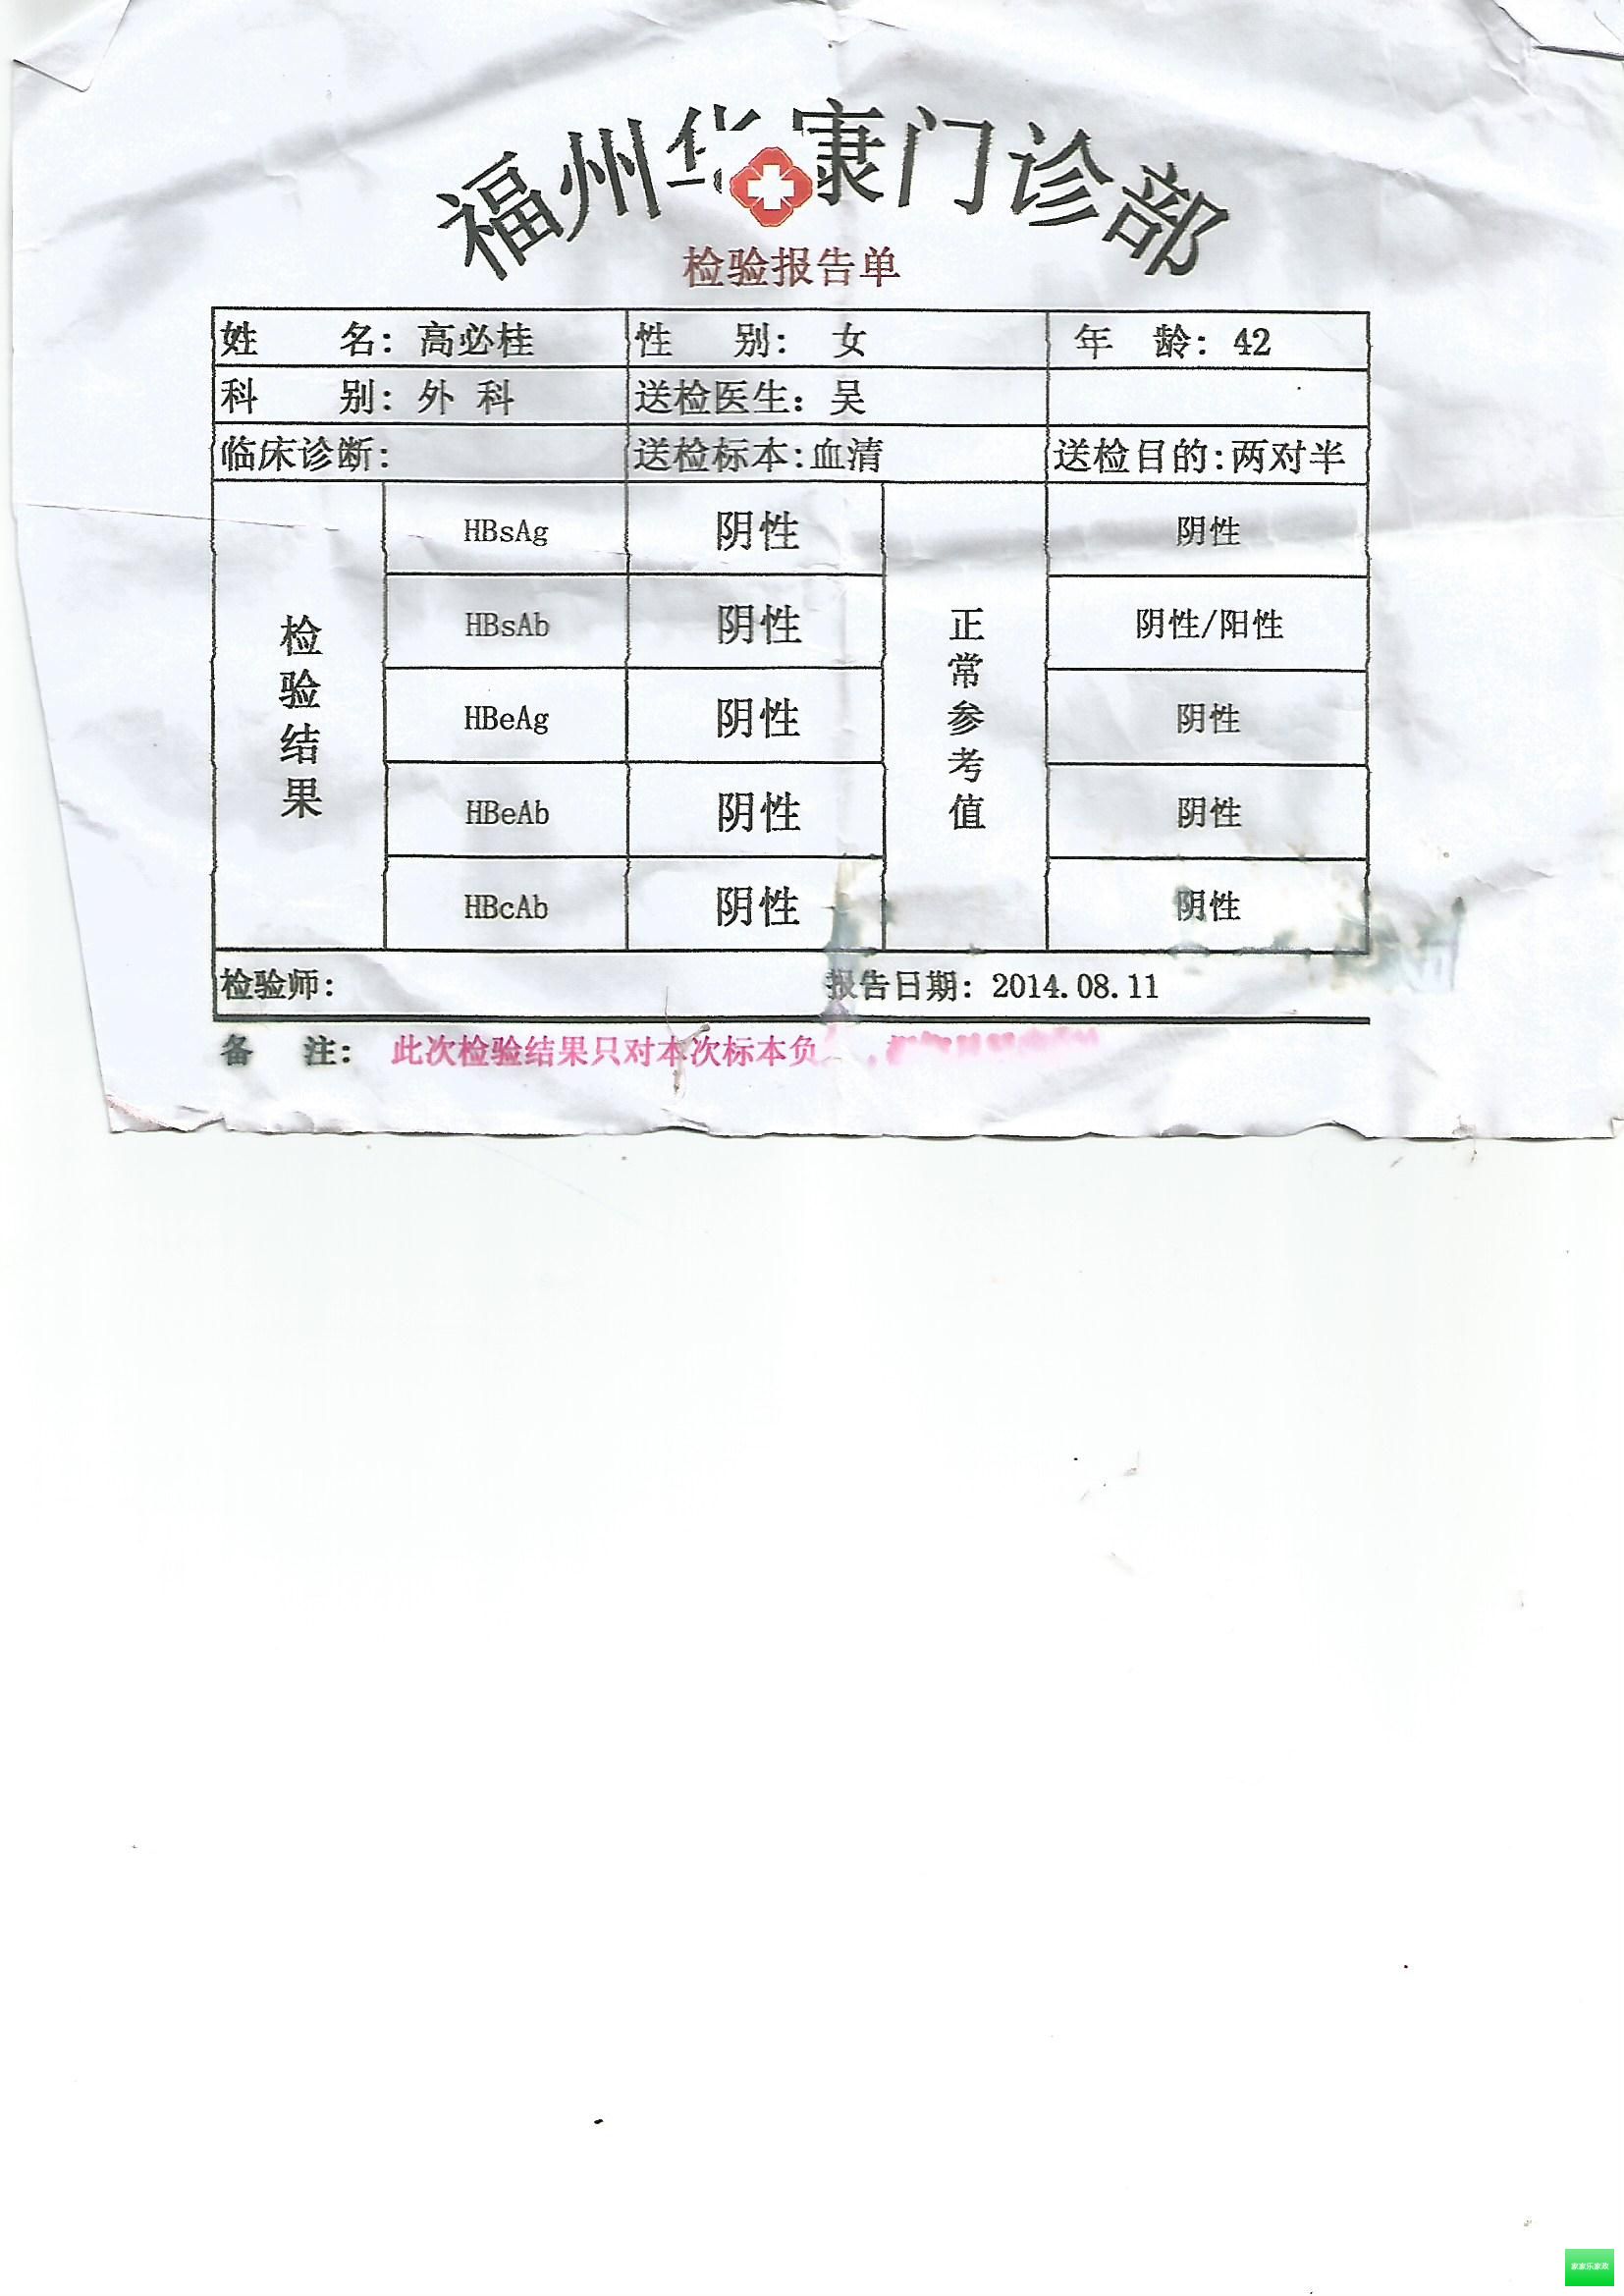 福州华康门诊部
检验报告单
姓 名：高必桂 性 别： 女 年 龄：42
科 别：外 科 送检医生：吴
临床诊断： 送检标本：血清 送检目的：两对半
检验结果
正常参考值
HBsAg 阴性 阴性
HBsAb 阴性 阴性/阳性
HBeAg 阴性 阴性
HBeAb 阴性 阴性
HBcAb 阴性 阴性
检验师： 报告日期：2014.08.11
备 注： 此次检验结果只对本次标本负